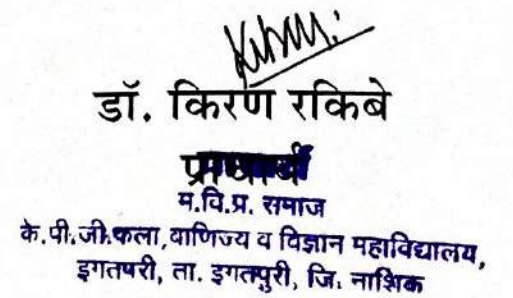 डॉ. किरण रकिबे
प्राचार्य
म.वि.प्र. समाज
के.पी.जी.कला,वाणिज्य व विज्ञान महाविद्यालय,
इगतपरी, ता. इगतपुरी, जि. नाशिक